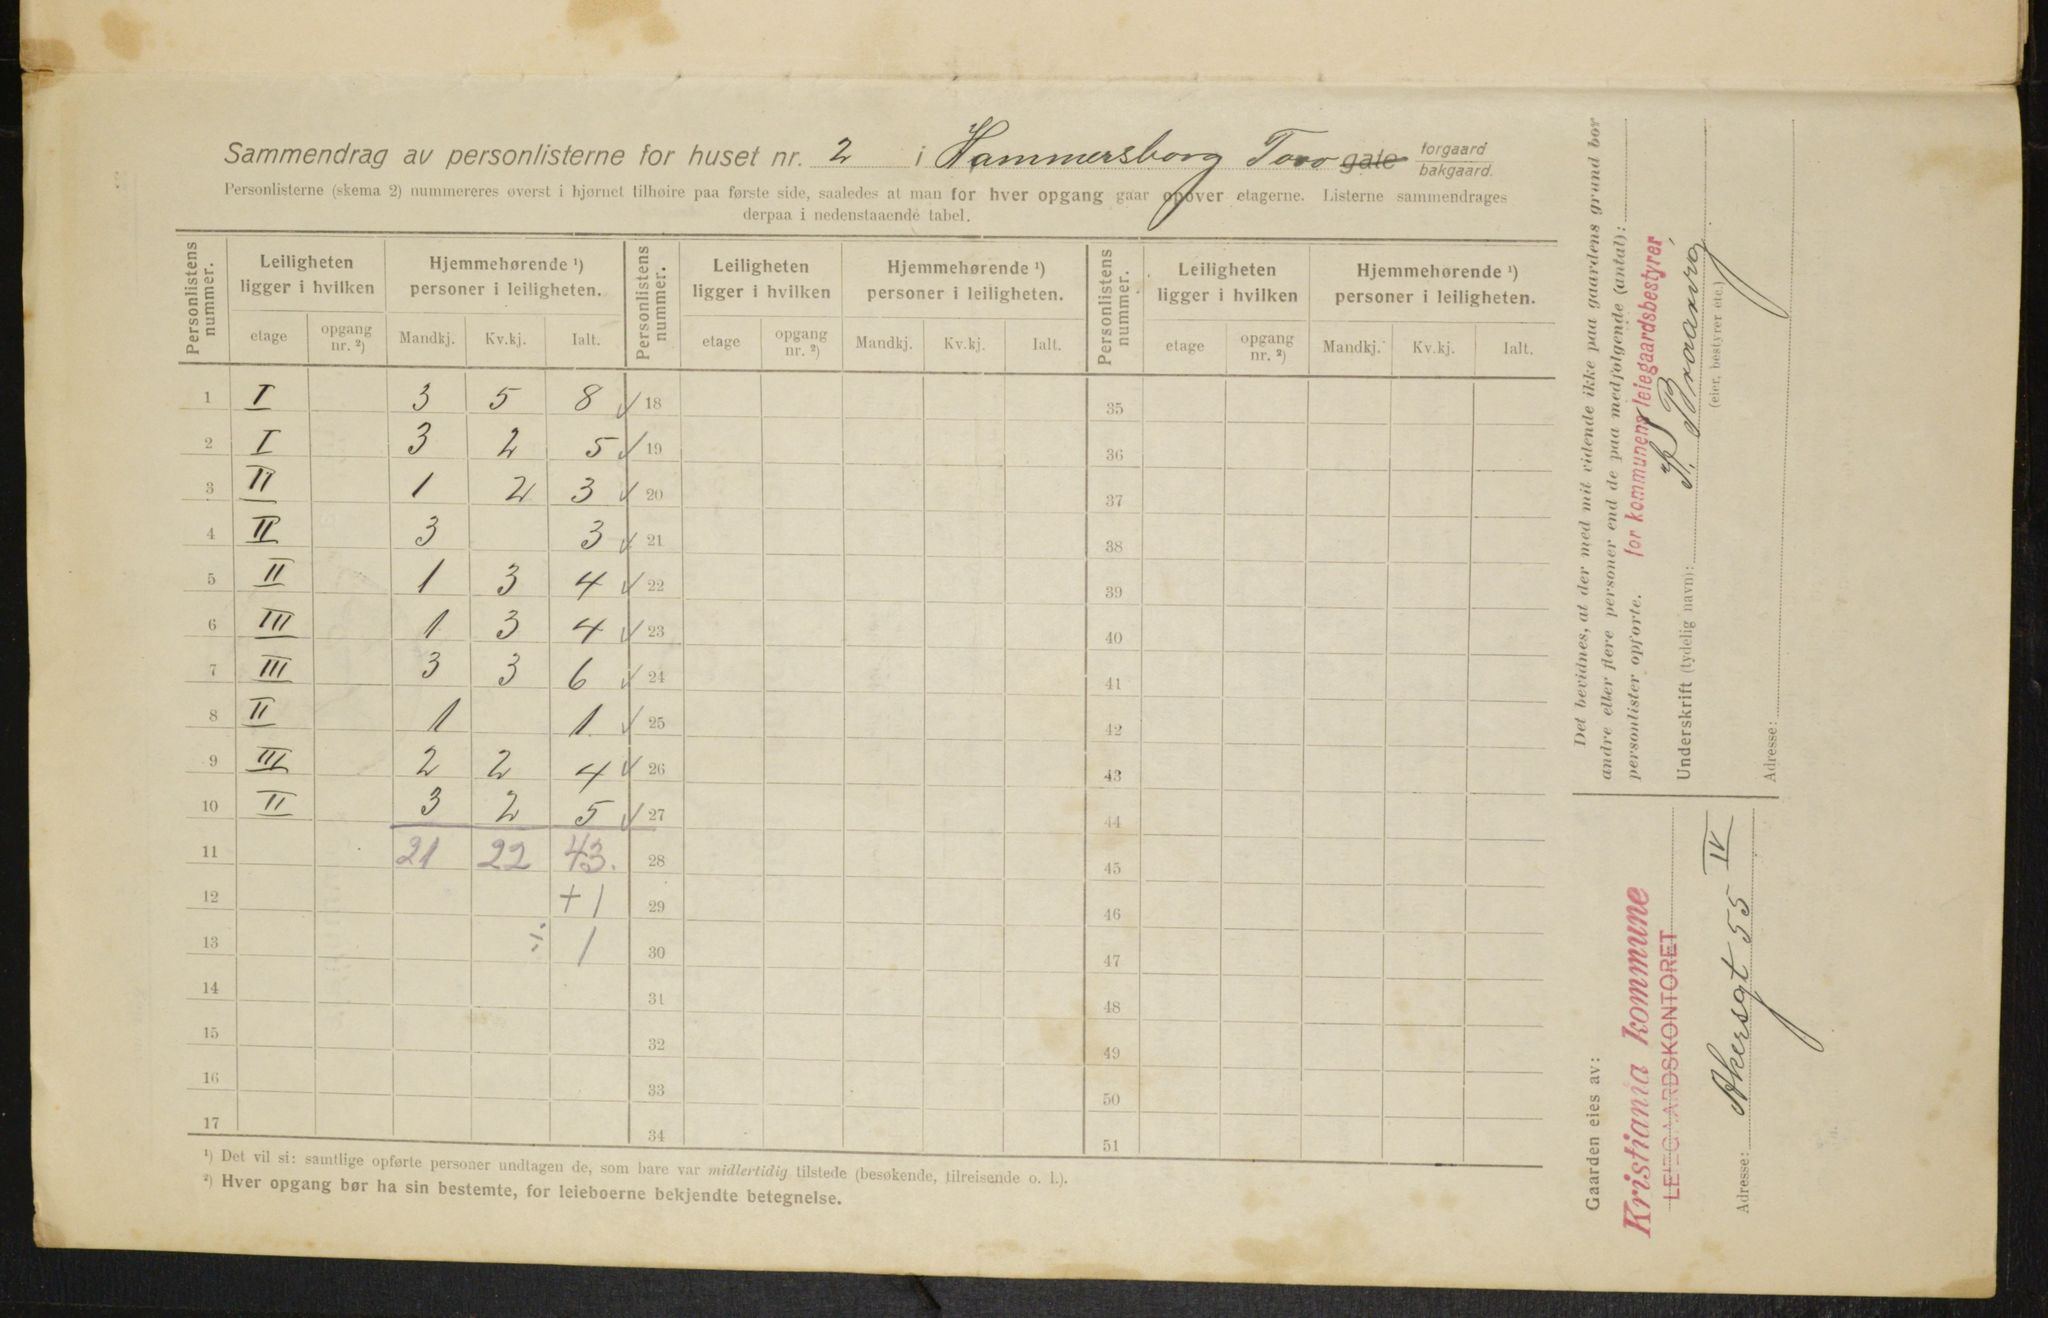 Sammendrag av personlisterne for huset nr. 2 i Hammersborg Torv gate forgaard bakgaard.
Personlisterne (skema 2) nummereres øverst i hjørnet tilhøire paa første side, saaledes at man for hver opgang gaar opover etagerne. Listerne sammendrages
derpaa i nedenstaaende tabel.
Personlistens nummer. Leiligheten ligger i hvilken Hjemmehørende ¹) personer i leiligheten. Personlistens nummer. Leiligheten ligger i hvilken Hjemmehørende ¹) personer i leiligheten. Personlistens nummer. Leiligheten ligger i hvilken Hjemmehørende ¹) personer i leiligheten.
etage opgang nr. ²) Mandkj. Kv.kj. Ialt. etage opgang nr. ²) Mandkj. Kv.kj. Ialt. etage opgang nr. ²) Mandkj. Kv.kj. Ialt.
1 I 3 5 8 ✓ 18 35
2 I 3 2 5 ✓ 19 36
3 II 1 2 3 ✓ 20 37
4 II 3 3 ✓ 21 38
5 II 1 3 4 ✓ 22 39
6 III 1 3 4 ✓ 23 40
7 III 3 3 6 ✓ 24 41
8 II 1 1 ✓ 25 42
9 III 2 2 4 ✓ 26 43
10 II 3 2 5 ✓ 27 44
11 21 22 43. 28 45
12 + 1 29 46
13 ÷ 1 30 47
14 31 48
15 32 49
16 33 50
17 34 51
¹) Det vil si: samtlige opførte personer undtagen de, som bare var midlertidig tilstede (besøkende, tilreisende o. l.).
²) Hver opgang bør ha sin bestemte, for leieboerne bekjendte betegnelse.
Det bevidnes, at der med mit vidende ikke paa gaardens grund bor
andre eller flere personer end de paa medfølgende (antal):
personlister opførte. for kommunens leiegaardsbestyrer,
Underskrift (tydelig navn):
(eier, bestyrer etc.)
Adresse:
Gaarden eies av:
Kristiania kommune
LEIEGAARDSKONTORET
Adresse: Akersgt 55 IV